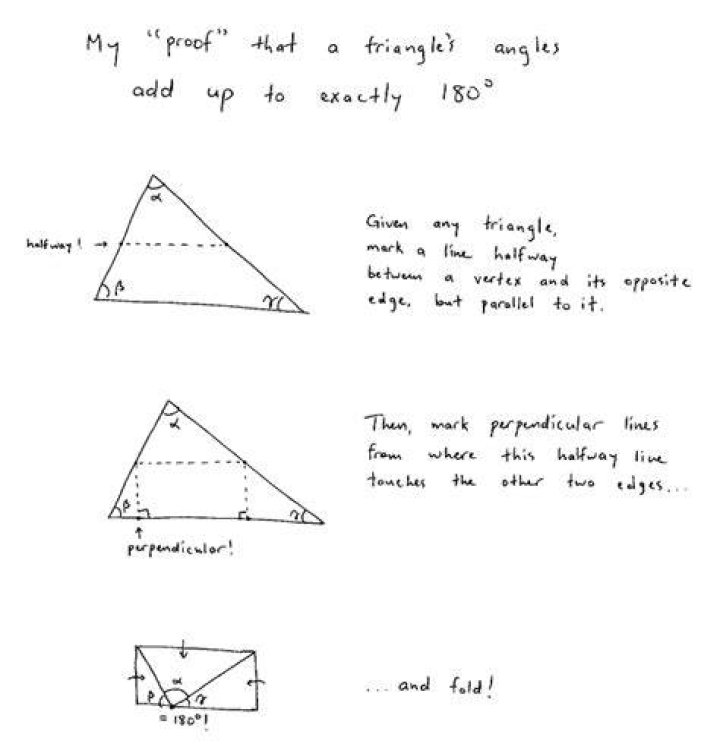 My "proof" that a triangle's angles
add up to exactly 180°
α
halfway! →
β
γ
Given any triangle,
mark a line halfway
between a vertex and its opposite
edge, but parallel to it.
α
β
γ
perpendicular!
Then, mark perpendicular lines
from where this halfway line
touches the other two edges...
α
β
γ
= 180°!
... and fold!